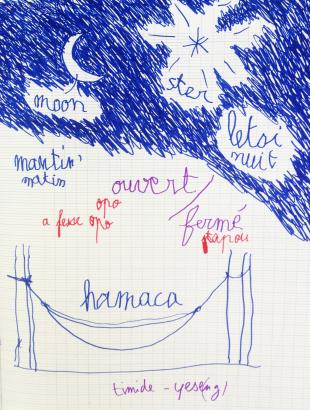 moon
ster
letsi
nuit
mantin'
matin
ouvert /
opo
a fesse opo
fermé
tapou
hamaca
timide - yese(ng)